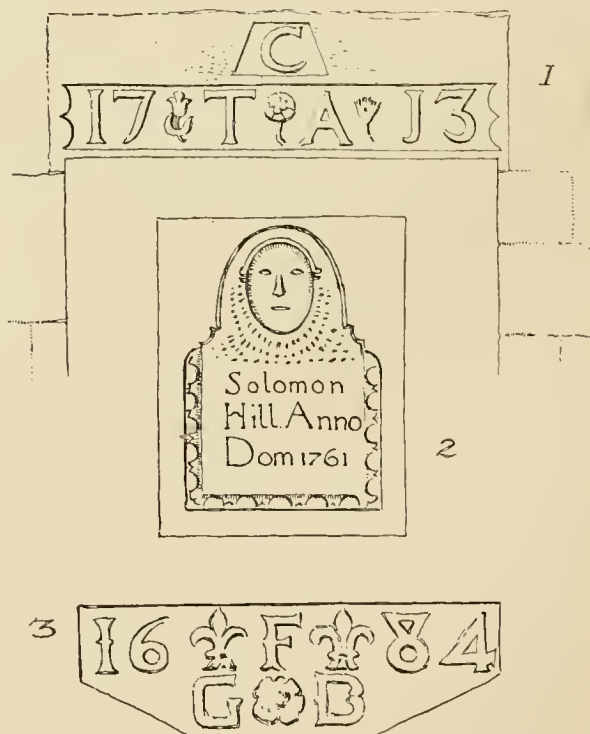 C
1
17 T A 13
Solomon
Hill. Anno
Dom 1761
2
3
16 F 84
G B